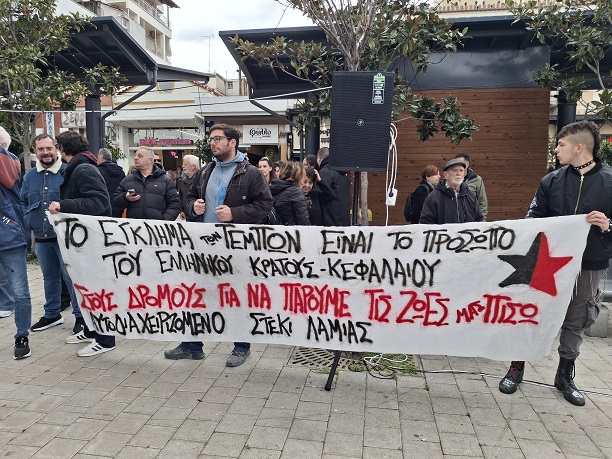 ΤΟ ΕΓΚΛΗΜΑ των ΤΕΜΠΩΝ ΕΙΝΑΙ ΤΟ ΠΡΟΣΩΠΟ
ΤΟΥ ΕΛΛΗΝΙΚΟΥ ΚΡΑΤΟΥΣ-ΚΕΦΑΛΑΙΟΥ
ΣΤΟΥΣ ΔΡΟΜΟΥΣ ΓΙΑ ΝΑ ΠΑΡΟΥΜΕ ΤΙΣ ΖΩΕΣ ΜΑΣ ΠΙΣΩ
ΑΥΤΟΔΙΑΧΕΙΡΙΖΟΜΕΝΟ ΣΤΕΚΙ ΛΑΜΙΑΣ